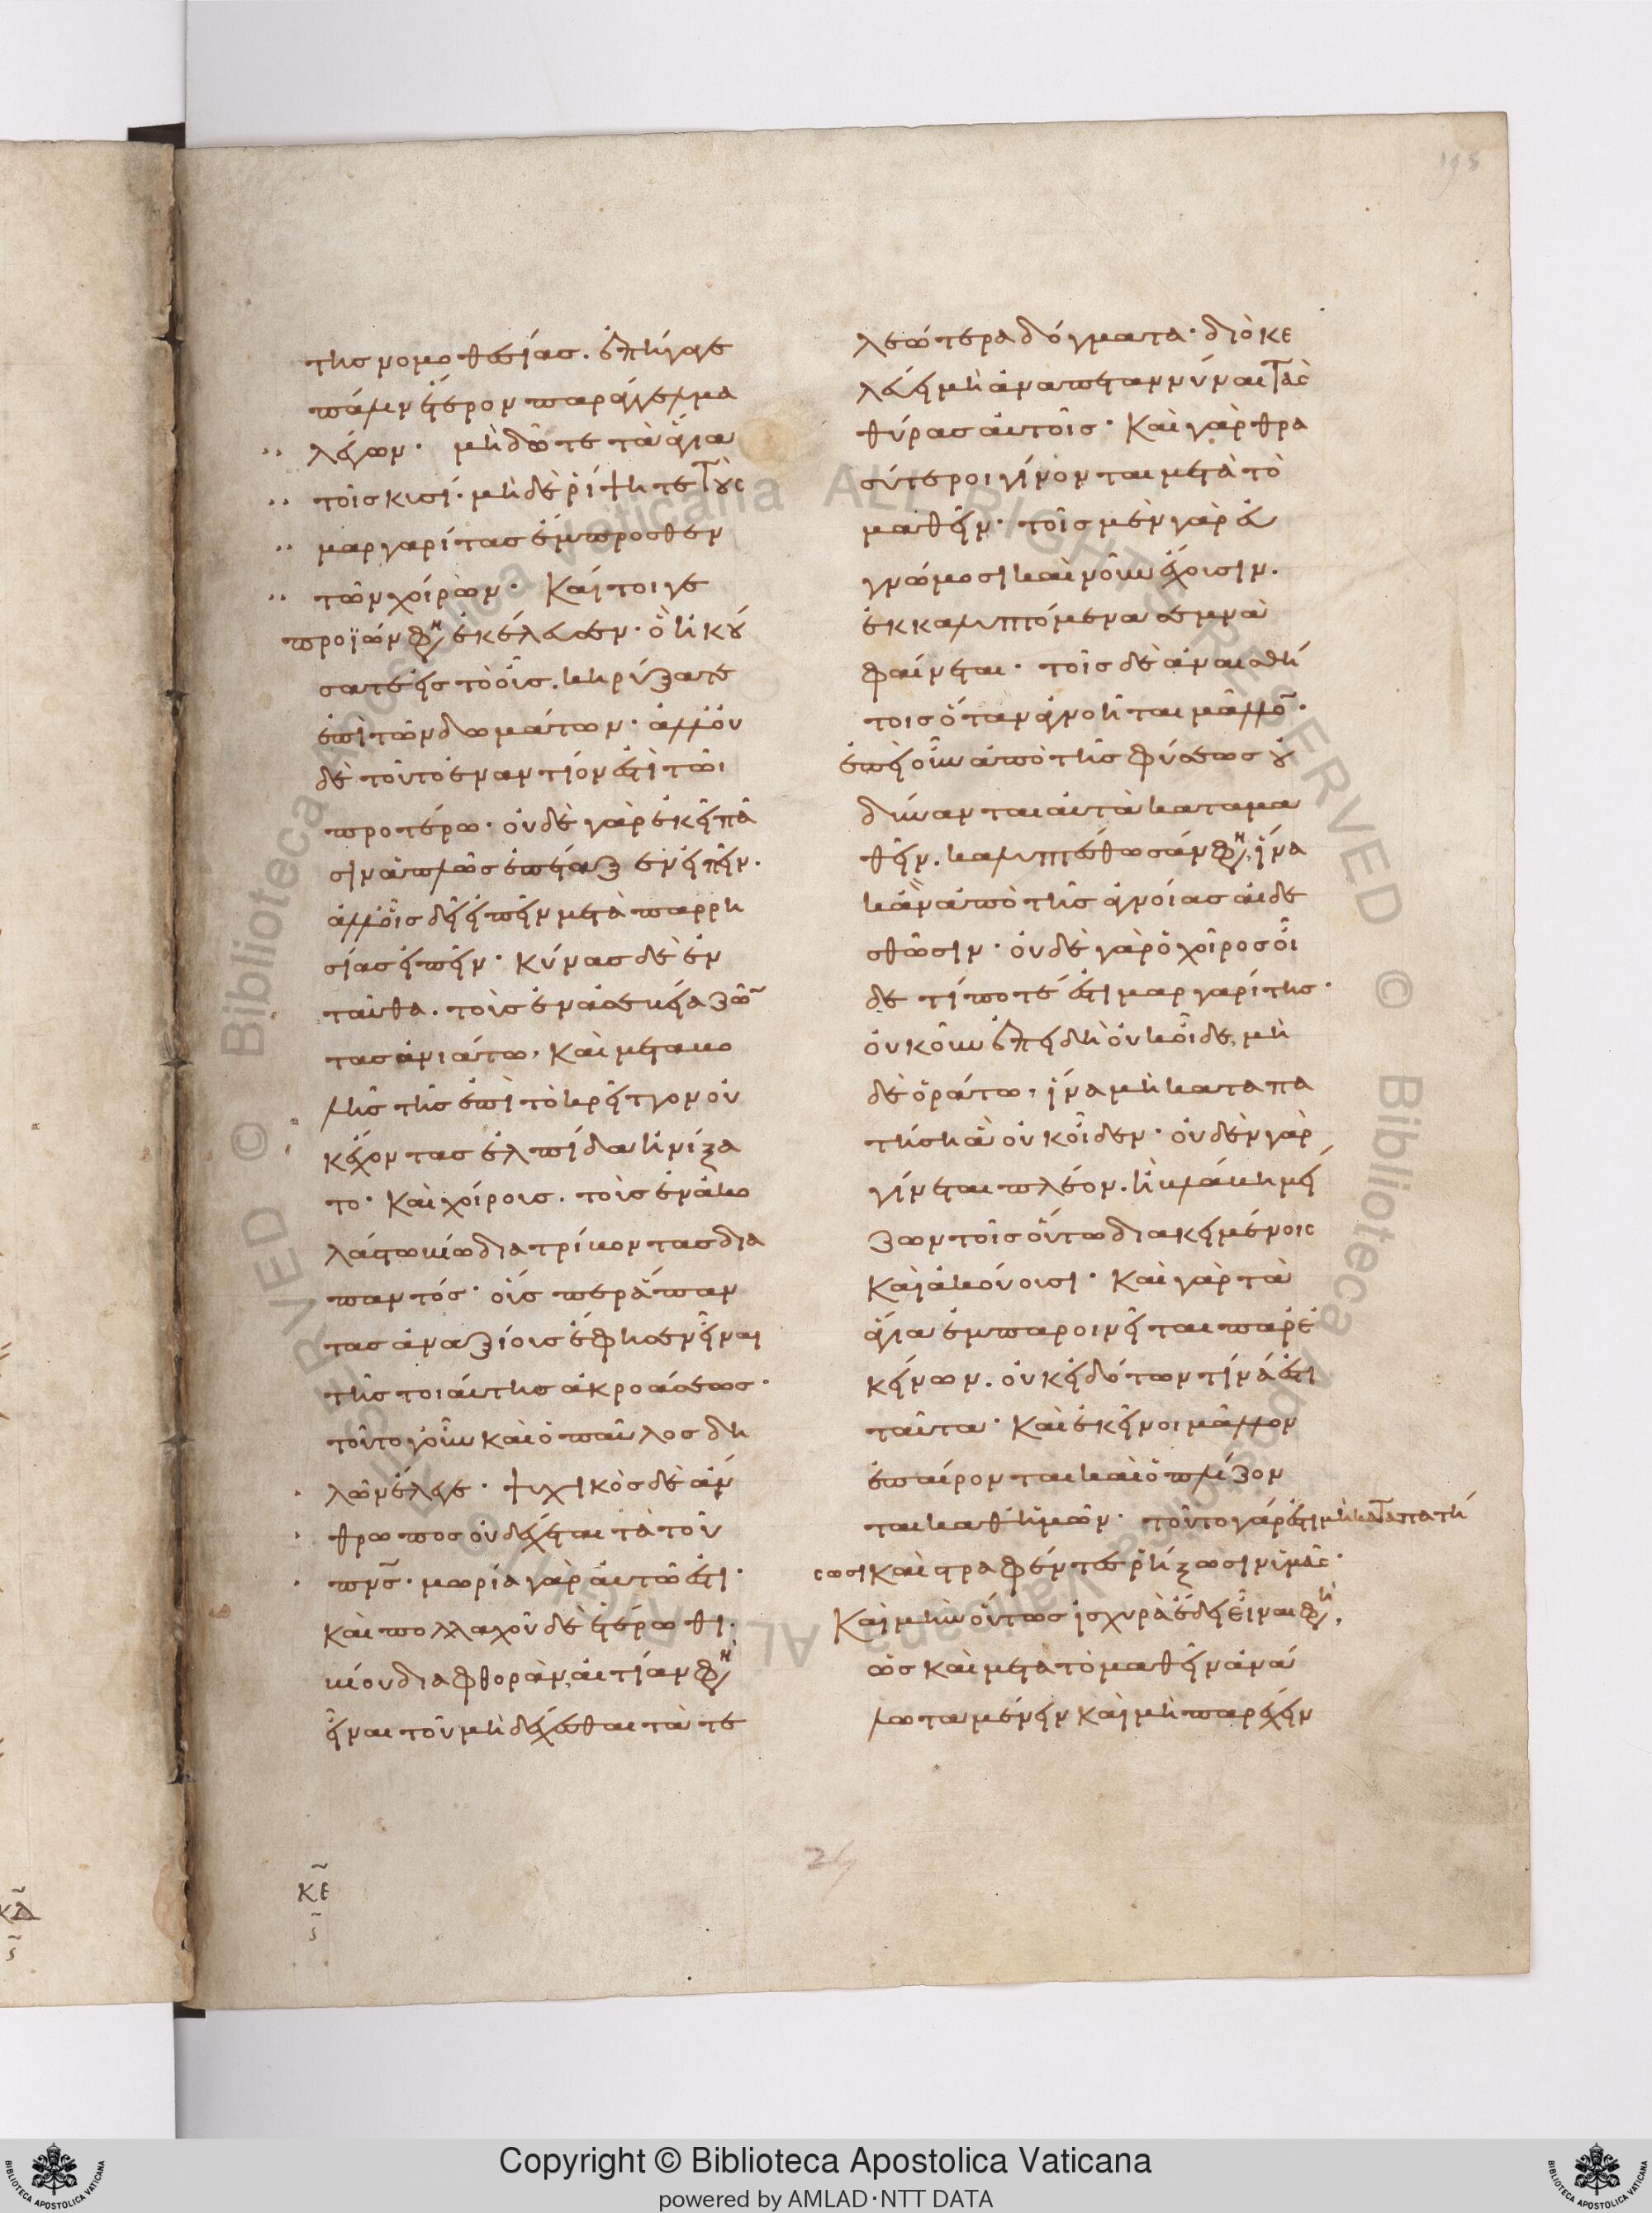 195
της νομοθεσίας. ἐπήγαγε
πάλιν ἕτερον παράγγελμα
λέγων· μὴ δῶτε τὰ ἅγια
τοῖς κυσί· μὴ δὲ ῥίψητε τοὺς
μαργαρίτας ἔμπροσθεν
τῶν χοίρων· Καίτοιγε
προϊὼν φη(σιν) ἐκέλευσεν· ὃ ἠκού
σατε εἰς τὸ οὖς. κηρύξατε
ἐπὶ τῶν δωμάτων· ἀλλ' οὐ
δὲ τοῦτο ἐναντίον ἐστὶ τῶι
προτέρω· οὐδὲ γὰρ ἐκεῖ πᾶ
σιν ἁπλῶς ἐπέταξεν εἰπεῖν.
ἀλλ' οἷς δεῖ εἰπεῖν μετὰ παρρη
σίας εἰπεῖν· κύνας δὲ ἐν
ταῦθα. τοὺς ἐν ἀσεβεία ζῶν
τας ἀνιάτω, καὶ μεταβο
λῆς τῆς ἐπὶ τὸ κρεῖττον οὐ
κ ἔχοντας ἐλπίδα ἠνίξα
το· Καὶ χοίρους. τοὺς ἐν ἀκο
λάστω βίω διατρίβοντας δια
παντός· οὕσπερ ἅπαν
τας ἀναξίους ἔφησεν εἶναι
τῆς τοιαύτης ἀκροάσεως·
τοῦτο γοῦν καὶ ὁ παῦλος δη
λῶν ἔλεγε· ψυχικὸς δὲ ἄν
θρωπος οὐ δέχεται τὰ τοῦ
πνς· μωρία γὰρ αὐτῶ ἐστι·
καὶ πολλαχοῦ δὲ ἑτέρωθι.
βίου διαφθορὰν, αἰτίαν φη(σιν)
εἶναι τοῦ μὴ δέχεσθαι τὰ τε
λεώτερα δόγματα· διὸ κε
λεύει μὴ ἀναπεταννύναι τὰς
θύρας αὐτοῖς· Καὶ γὰρ θρα
σύτεροι γίνονται μετὰ τὸ
μαθεῖν· τοῖς μὲν γὰρ εὐ
γνώμοσι καὶ νοῦν ἔχουσιν.
ἐκκαλυπτόμενα σεμνὰ
φαίνεται· τοῖς δὲ ἀναισθή
τοις ὅταν ἀγνοῆται μᾶλλον·
ἐπεὶ οὖν ἀπὸ τῆς φύσεως οὐ
δύνανται αὐτὰ καταμα
θεῖν. καλυπτέσθωσαν φη(σιν), ἵνα
κἂν ἀπὸ τῆς ἀγνοίας αἰδε
σθῶσιν· οὐδὲ γὰρ ὁ χοῖρος οἶ
δε τί ποτέ ἐστι μαργαρίτης·
οὐκοῦν ἐπειδὴ οὐκ οἶδε, μὴ
δὲ ὁράτω, ἵνα μὴ καταπα
τήση ἃ οὐκ οἶδεν· οὐδὲν γὰρ
γίνεται πλέον. ἢ βλάβη μεί
ζων τοῖς οὕτω διακειμένοις
καὶ ἀκούουσι· Καὶ γὰρ τὰ
ἅγια ἐμπαροινεῖται παρ' ἐ
κείνων. οὐκ εἰδότων τίνά ἐστι
ταῦτα· Καὶ ἐκεῖνοι μᾶλλον
ἐπαίρονται καὶ ὁπλίζον
ται καθ' ἡμῶν· τοῦτο γάρ ἐστι μὴ καταπατή
σωσι καὶ στραφέντες ῥήξωσιν ὑμᾶς·
Καὶ μὴν οὕτως ἰσχυρὰ ἔδει εἶναι φη(σιν),
ὡς καὶ μετὰ τὸ μαθεῖν ἀνά
λωτα μένειν καὶ μὴ παρέχειν
κε
ς
κδ
ς
Copyright © Biblioteca Apostolica Vaticana
powered by AMLAD·NTT DATA